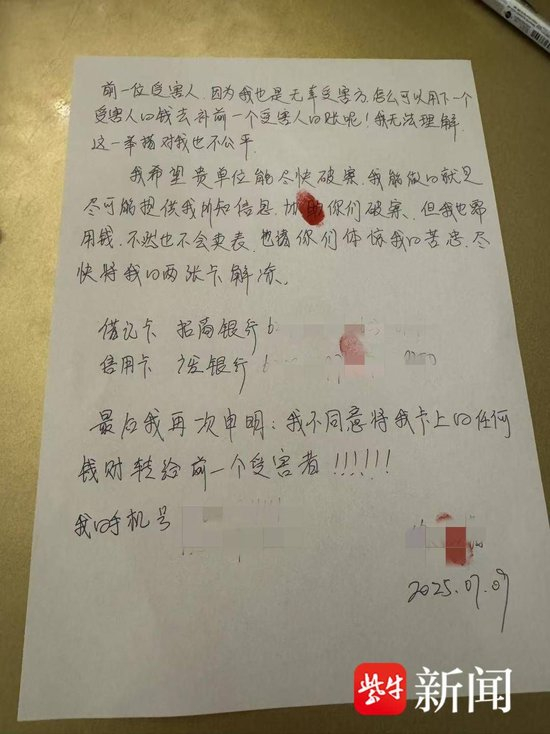 前一位受害人,因为我也是无辜受害方,怎么可以用下一个
受害人的钱去补前一个受害人的账呢!我无法理解
这一举措对我也不公平.
我希望贵单位能尽快破案,我能做的就是
尽可能提供我所知信息,协助你们破案.但我也需
用钱,不然也不会卖表,也请你们体恤我的苦忠.尽
快将我的两张卡解冻。
借记卡 招商银行 6
信用卡 广发银行 6
最后我再次申明:我不同意将我卡上的任何
钱财转给前一个受害者!!!!!!
我的手机号
2025.07.09
紫牛新闻